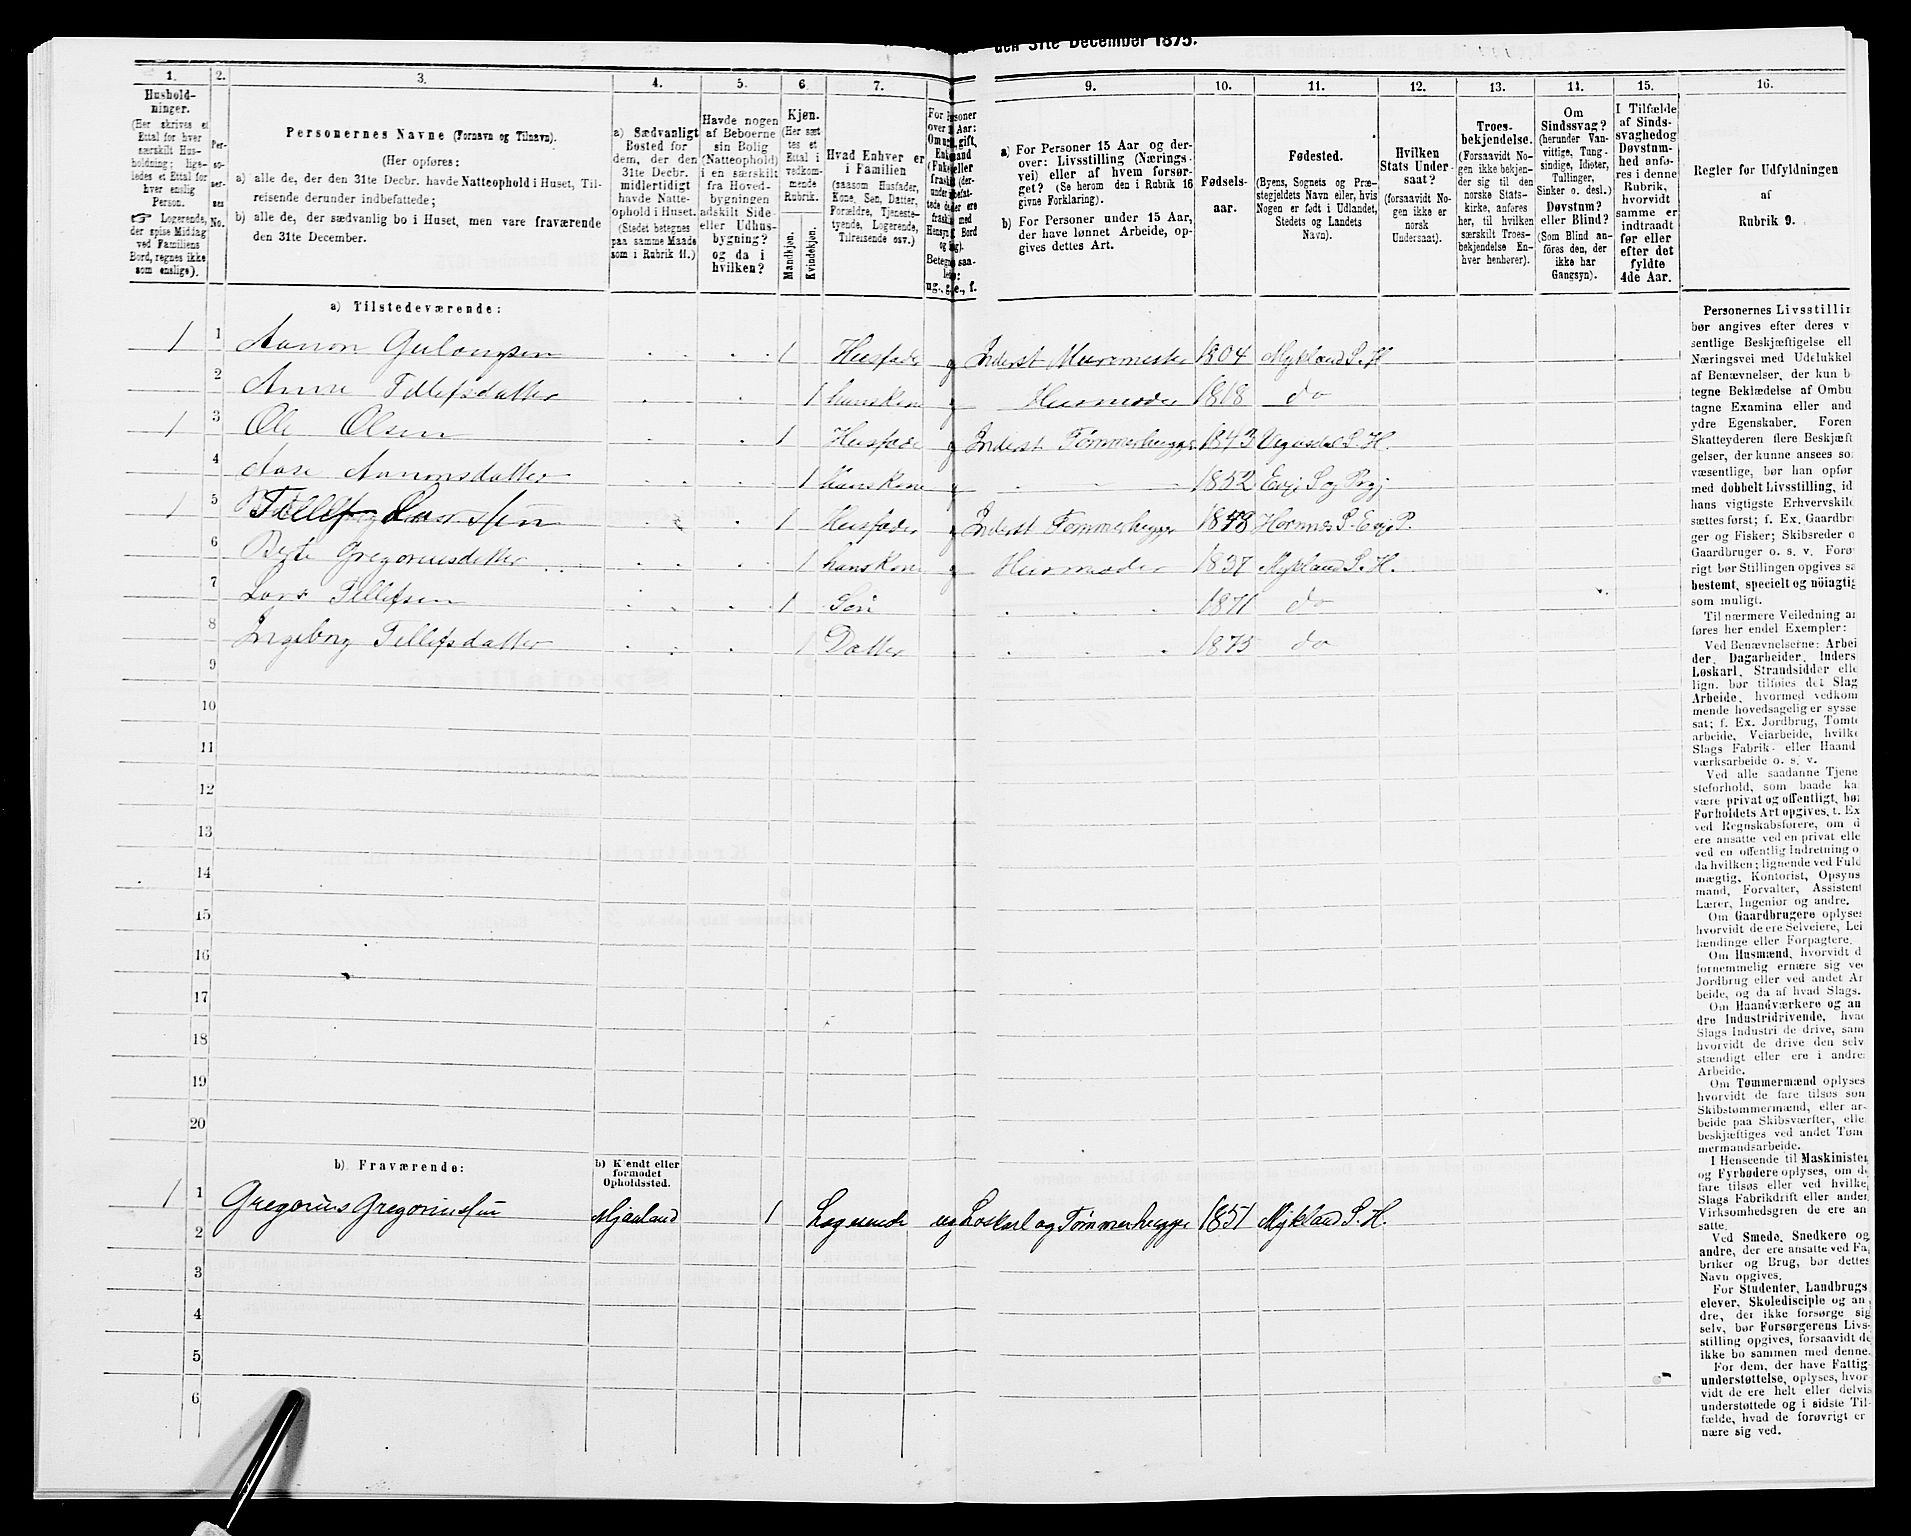 den 31te December 1875.
1. 2. 3. 4. 5. 6. 7. 9. 10. 11. 12. 13. 14. 15. 16.
Hushold-
ninger.
(Her skrives et
Ettal for hver
særskilt Hus-
holdning; lige-
ledes et Ettal for
hver enslig
Person.
☞ Logerende,
der spise Middag
ved Familiens
Bord, regnes ikke
som enslige).
Per-
so-
ner-
nes
No.
Personernes Navne (Fornavn og Tilnavn).
(Her opføres:
a) alle de, der den 31te Decbr. havde Natteophold i Huset, Til-
reisende derunder indbefattede;
b) alle de, der sædvanlig bo i Huset, men vare fraværende
den 31te December.
a) Sædvanligt
Bosted for
dem, der den
31te Decbr.
midlertidigt
havde Natte-
ophold i Huset.
(Stedet betegnes
paa samme Maade
som i Rubrik 11.)
Havde nogen
af Beboerne
sin Bolig
(Natteophold)
i en særskilt
fra Hoved-
bygningen
adskilt Side-
eller Udhus-
bygning?
og da i
hvilken?
Kjøn.
(Her sæt
tes et
Ettal i
vedkom-
mende
Rubrik.
Mandkjøn.
Kvindekjøn.
Hvad Enhver er
i Familien
(saasom Husfader,
Kone, Søn, Datter,
Forældre, Tjeneste-
tyende, Logerende,
Tilreisende osv.)
ug., g., e., f.
a) For Personer 15 Aar og der-
over: Livsstilling (Nærings-
vei) eller af hvem forsør-
get? (Se herom den i Rubrik 16
givne Forklaring).
b) For Personer under 15 Aar,
der have lønnet Arbeide, op-
gives dettes Art.
Fødsels-
aar.
Fødested.
(Byens, Sognets og Præ-
stegjeldets Navn eller, hvis
Nogen er født i Udlandet,
Stedets og Landets
Navn).
Hvilken
Stats Under-
saat?
(forsaavidt No-
gen ikke er
norsk
Undersaat).
Troes-
bekjendelse.
(Forsaavidt No-
gen ikke bekjen-
der sig til den
norske Stats-
kirke, anføres
her, til hvilken
særskilt Troes-
bekjendelse En-
hver henhører).
Om
Sindssvag?
(herunder Van-
vittige, Tung-
sindige, Idioter,
Tullinger,
Sinker o. desl.)
Døvstum?
eller Blind?
(Som Blind an-
føres den, der
ikke har
Gangsyn).
I Tilfælde
af Sinds-
svaghedog
Døvstum-
hed anfø-
res i denne
Rubrik,
hvorvidt
samme er
indtraadt
før eller
efter det
fyldte
4de Aar.
Regler for Udfyldningen
af
Rubrik 9.
a) Tilstedeværende:
1 1 Aanon Gulangsen 1 Husfader g Inderst Muremester 1804 Mykland S. H.
2 Anne Tellefsdatter 1 hans Kone g Husmoder 1818 do
1 3 Ole Olsen 1 Husfader g Inderst Tømmerhugger 1843 Vegusdal S. H.
4 Aase Aanonsdatter 1 hans Kone g 1852 Evje S og Prgj
1 5 Tellef Larssen 1 Husfader g Inderst Tømmerhugger 1843 Hornnes S. Evje P.
6 Berte Gregoriusdatter 1 hans Kone g Husmoder 1837 Mykland S. H.
7 Lars Tellefsen 1 Søn 1871 do
8 Ingeborg Tellefsdatter 1 Datter 1875 do
9
10
11
12
13
14
15
16
17
18
19
20
b) Fraværende:
b) Kjendt eller
formodet
Opholdssted.
1 1 Gregorius Gregoriussen Mjaaland 1 Logerende ug Løskarl og Tømmerhugger 1851 Mykland S. H.
2
3
4
5
6
Personernes Livsstillin
bør angives efter deres v
sentlige Beskjæftigelse ell
Næringsvei med Udelukkel
af Benævnelser, der kun b
tegne Beklædelse af Ombu
tagne Examina eller and
ydre Egenskaber. Foren
Skatteyderen flere Beskjæft
gelser, der kunne ansees so
væsentlige, bør han opfør
med dobbelt Livsstilling, id
hans vigtigste Erhvervskild
sættes først; f. Ex. Gaardbr
ger og Fisker; Skibsreder o
Gaardbruger o. s. v. Forø
rigt bør Stillingen opgives sa
bestemt, specielt og nöiagtig
som muligt.
Til nærmere Veiledning an
føres her endel Exempler:
Ved Benævnelserne: Arbei
der, Dagarbeider, Inders
Løskarl, Strandsidder elle
lign. bør tilføies det Slag
Arbeide, hvormed vedkom
mende hovedsagelig er sysse
sat; f. Ex. Jordbrug, Tomte
arbeide, Veiarbeide, hvilke
Slags Fabrik- eller Haand
værksarbeide o. s. v.
Ved alle saadanne Tjene
steforhold, som baade ka
være privat og offentligt, bør
Forholdets Art opgives, t. Ex
ved Regnskabsførere, om d
ere ansatte ved en privat elle
ved en offentlig Indretning o
da hvilken; lignende ved Fuld
mægtig, Kontorist, Opsyns
mand, Forvalter, Assistent
Lærer, Ingeniør og andre.
Om Gaardbrugere oplyses
hvorvidt de ere Selveiere, Lei
lændinge eller Forpagtere.
Om Husmænd, hvorvidt d
fornemmelig ernære sig ved
Jordbrug eller ved andet Ar
beide, og da af hvad Slags.
Om Haandværkere og an
dre Industridrivende, hvad
Slags Industri de drive, sam
hvorvidt de drive den selv
stændigt eller ere i andres
Arbeide.
Om Tømmermænd oplyses
hvorvidt de fare tilsøs som
Skibstømmermænd, eller ar-
beide paa Skibsværfter, elle
beskjæftiges ved andet Tøm
mermandsarbeide.
I Henseende til Maskinister
og Fyrbødere oplyses, om de
fare tilsøs eller ved hvilke
Slags Fabrikdrift eller anden
Virksomhedsgren de ere an
satte.
Ved Smede, Snedkere og
andre, der ere ansatte ved Fa
briker og Brug, bør dettes
Navn opgives.
For Studenter, Landbrugs
elever, Skoledisciple og an
dre, der ikke forsørge sig
selv, bør Forsørgerens Livs-
stilling opgives, forsaavidt de
ikke bo sammen med denne.
For dem, der have Fattig-
understøttelse, oplyses, hvor-
vidt de ere helt eller delvis
understøttede og i sidste Til-
fælde, hvad de forøvrigt er
nære sig ved.